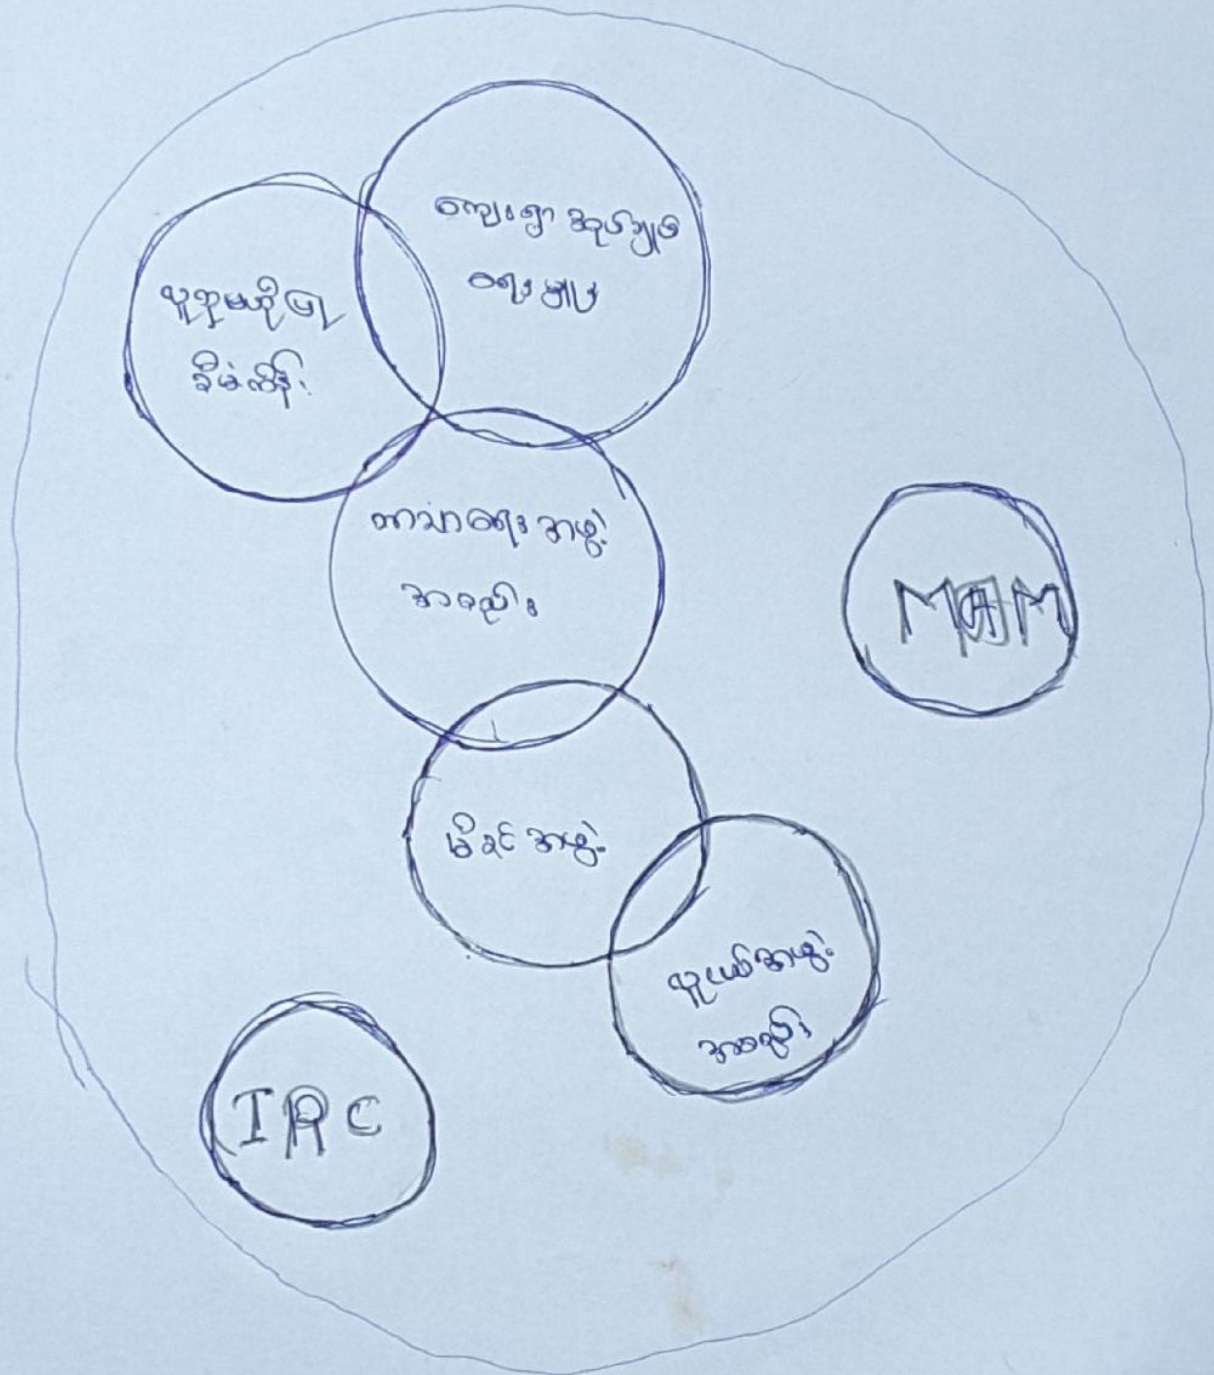 ကျေးရွာ အုပ်ချုပ်
ရေးမှူး
လူထုဗဟိုပြု
စီမံကိန်း
ဘာသာရေး အဖွဲ့
အစည်း
MAM
မိခင် အဖွဲ့
လူငယ်အဖွဲ့
အစည်း
IRC